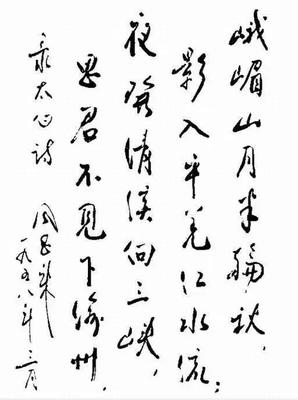 峨嵋山月半轮秋，
影入平羌江水流；
夜发清溪向三峡，
思君不见下渝州。
录太白诗
周恩来
一九五八年三月